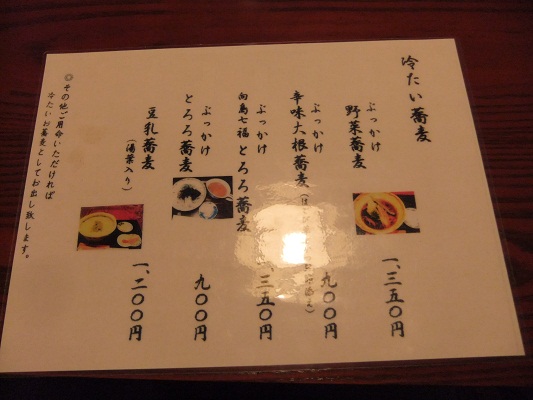 冷たい蕎麦
ぶっかけ
野菜蕎麦
一、三五〇円
ぶっかけ
辛味大根蕎麦
九〇〇円
ぶっかけ
向島七福とろろ蕎麦
一、三五〇円
ぶっかけ
とろろ蕎麦
九〇〇円
豆乳蕎麦
(湯葉入り)
一、二〇〇円
◎その他ご用命いただければ
冷たいお蕎麦としてお出し致します。